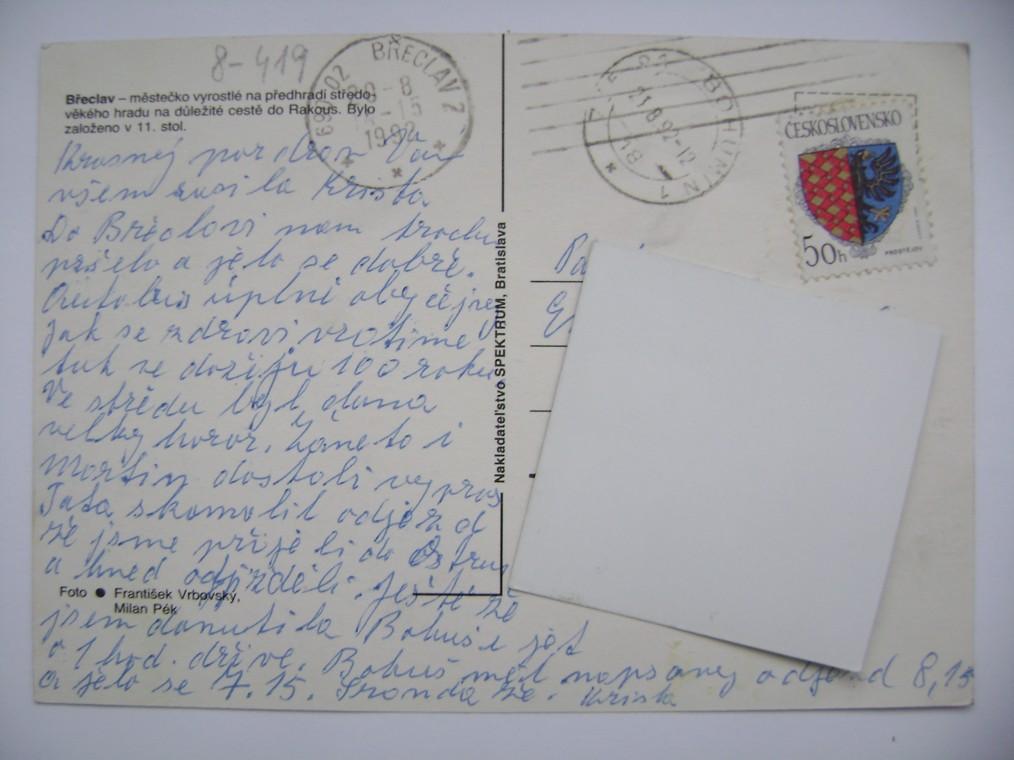 8-419
Břeclav – městečko vyrostlé na předhradí středo-
věkého hradu na důležité cestě do Rakous. Bylo
založeno v 11. stol.
690 02 BŘECLAV 2
BOHUMÍN 1
21.8.92-12
ČESKOSLOVENSKO
50h
PROSTĚJOV
Krasnej pozdrav Vám
všem
Do Břéclavi nam trochu
pršelo a jelo se dobře.
Autobus úplně obyčejne
Jak se zdravi vrátime
tak se dožiju 100 roku
Ve středu byl doma
velky horor. Žaneta i
Martin dostali
Tata skomolil odjezd
že jsme přijeli do
a hned odjížděli. Ještě že
jsem donutila Bohuše jet
o 1 hod. dřive. Bohuš měl napsaney odjezd 8,15
a jelo se 7.15. Sranda že.
Nakladateľstvo SPEKTRUM, Bratislava
Foto ● František Vrbovský,
Milan Pék